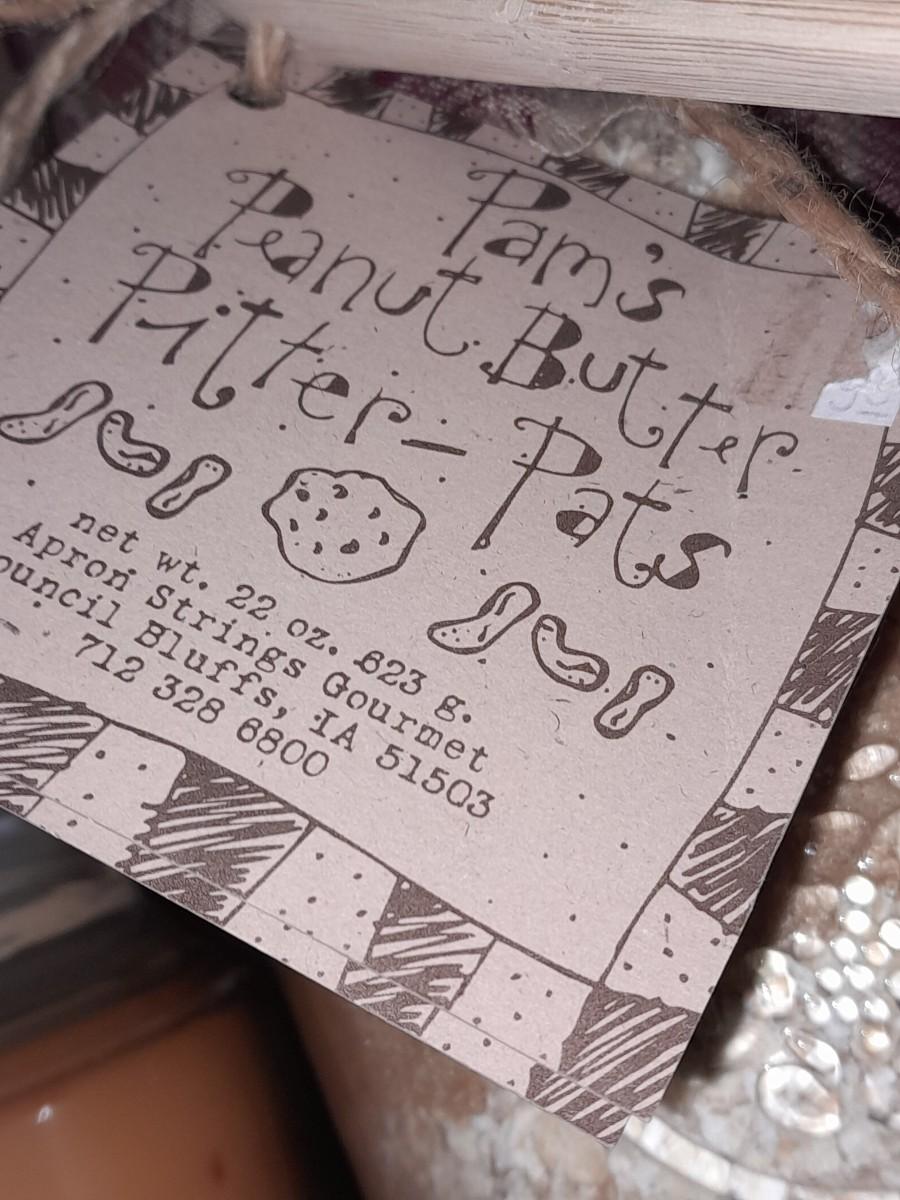 Pam's
Peanut Butter
Pitter-Pats
net wt. 22 oz. 623 g.
Apron Strings Gourmet
ouncil Bluffs, IA 51503
712 328 6800